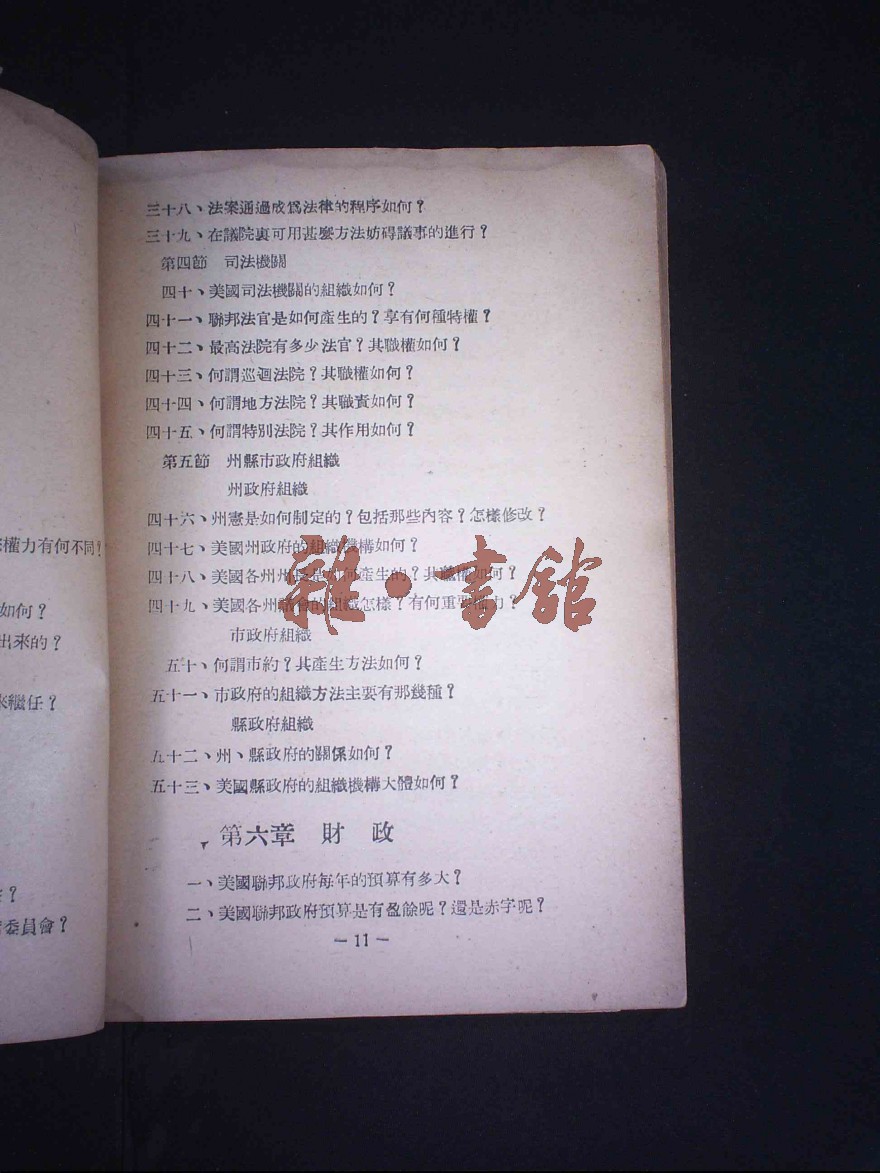 權力有何不同?
如何?
出來的?
來繼任?
?
委員會?
三十八、法案通過成爲法律的程序如何?
三十九、在議院裏可用甚麼方法妨碍議事的進行?
第四節 司法機關
四十、美國司法機關的組織如何?
四十一、聯邦法官是如何產生的?享有何種特權?
四十二、最高法院有多少法官?其職權如何?
四十三、何謂巡迴法院?其職權如何?
四十四、何謂地方法院?其職責如何?
四十五、何謂特別法院?其作用如何?
第五節 州縣市政府組織
州政府組織
四十六、州憲是如何制定的?包括那些內容?怎樣修改?
四十七、美國州政府的組織機構如何?
四十八、美國各州州長是如何產生的?其職權如何?
四十九、美國各州議會的組織怎樣?有何重要權力?
市政府組織
五十、何謂市約?其產生方法如何?
五十一、市政府的組織方法主要有那幾種?
縣政府組織
五十二、州、縣政府的關係如何?
五十三、美國縣政府的組織機構大體如何?
第六章 財政
一、美國聯邦政府每年的預算有多大?
二、美國聯邦政府預算是有盈餘呢?還是赤字呢?
— 11 —
雜·書館